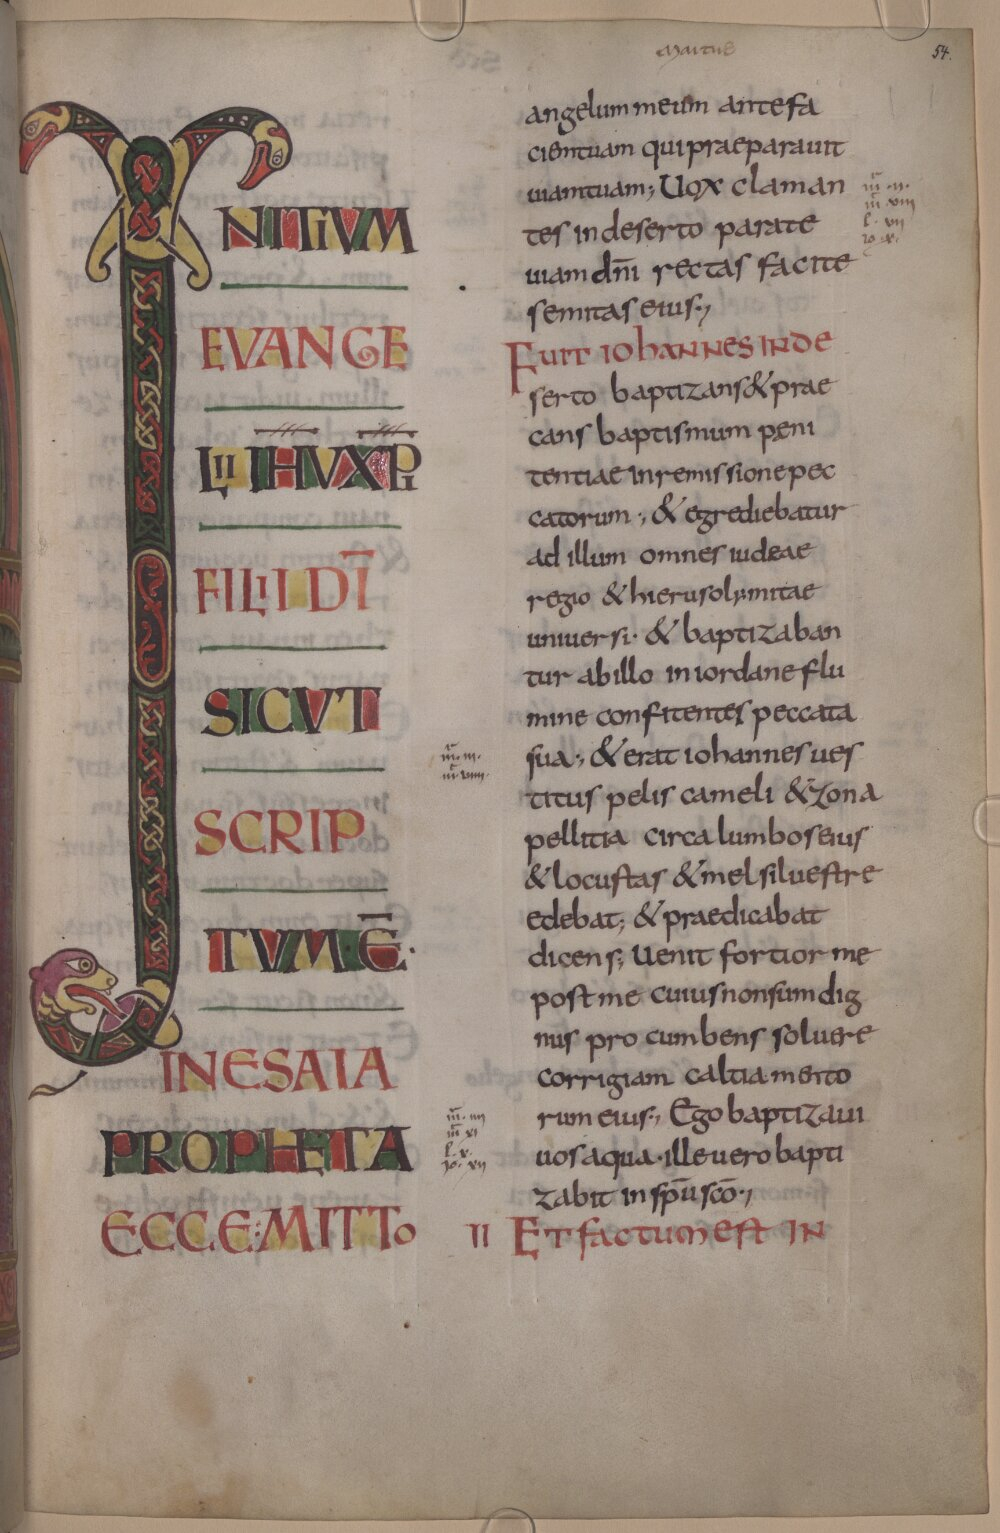 INITIUM
EVANGE
LII IHU XPI
FILII DI
SICVT
SCRIP
TVM Ē·
IN ESAIA
PROPHETA
ECCE:MITTo
marcus
54.
angelum meum ante fa
ciem tuam qui praeparauit
uiam tuam; Uox claman
tes in deserto parate
uiam dn̄i rectas facite
semitas eius;
Fuit iohannes in de
serto baptizans & prae
cans baptismum pęni
tentiae in remissione pec
catorum; & egrediebatur
ad illum omnes iudeae
regio & hierusolymitae
uniuersi· & baptizaban
tur ab illo in iordane flu
mine confitentes peccata
sua; & erat iohannes ues
titus pelis cameli & zona
pellitia circa lumbos eius
& locustas & mel siluestre
edebat; & praedicabat
dicens; Uenit fortior me
post me cuius non sum dig
nus procumbens soluere
corrigiam caltiamento
rum eius; Ego baptizaui
uos aqua· ille uero bapti
zabit in sp̄u sc̄o;
II Et factum est in